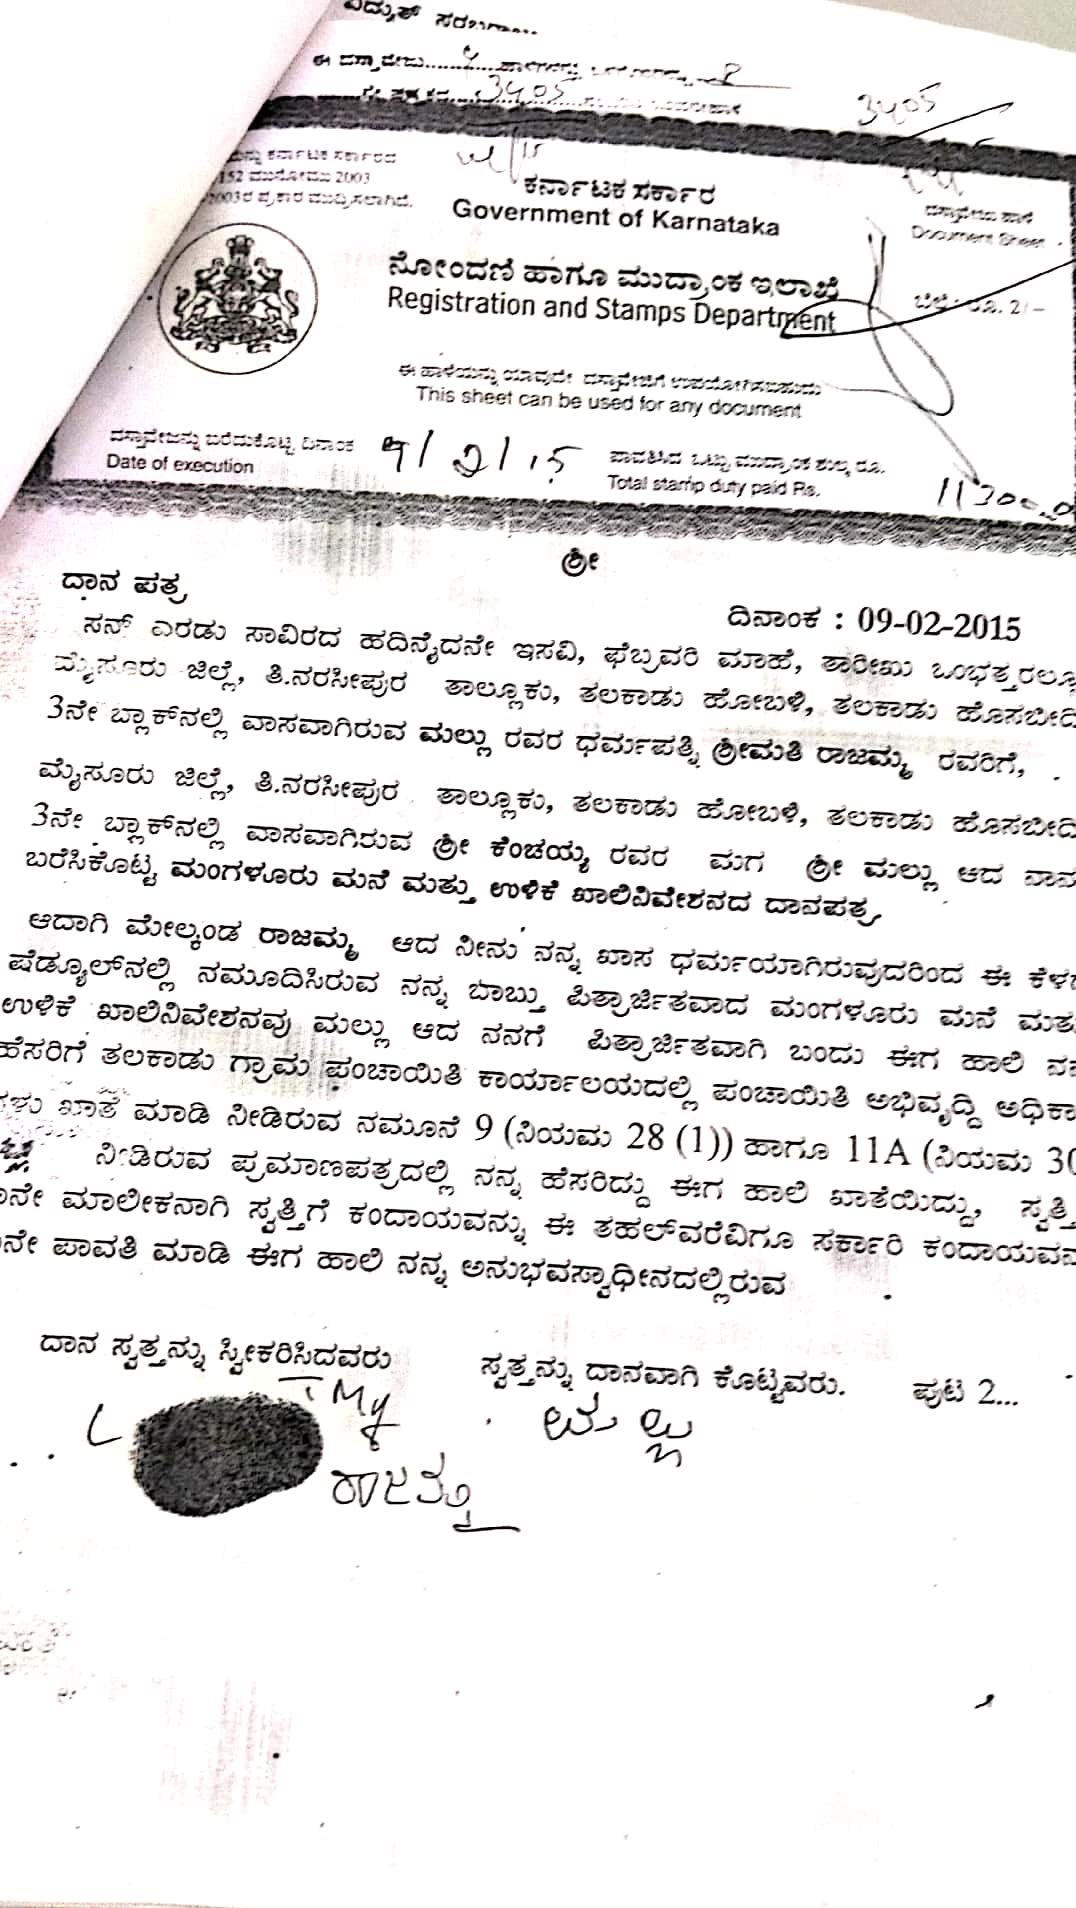 ವಿದ್ಯುತ್ ಸರಬರಾ....
ಈ ದಸ್ತಾವೇಜು
3405
3405
ಕರ್ನಾಟಕ ಸರ್ಕಾರದ
152 ಮುನೋಮು 2003
2003ರ ಪ್ರಕಾರ ಮುದ್ರಿಸಲಾಗಿದೆ.
ಕರ್ನಾಟಕ ಸರ್ಕಾರ
Government of Karnataka
ದಸ್ತಾವೇಜು ಹಾಳೆ
Document Sheet
ನೋಂದಣಿ ಹಾಗೂ ಮುದ್ರಾಂಕ ಇಲಾಖೆ
Registration and Stamps Department
ಬೆಲೆ : ರೂ. 2/-
ಈ ಹಾಳೆಯನ್ನು ಯಾವುದೇ ದಸ್ತಾವೇಜಿಗೆ ಉಪಯೋಗಿಸಬಹುದು
This sheet can be used for any document
ದಸ್ತಾವೇಜನ್ನು ಬರೆದುಕೊಟ್ಟ ದಿನಾಂಕ
Date of execution
9/2/15
ಪಾವತಿಸಿದ ಒಟ್ಟು ಮುದ್ರಾಂಕ ಶುಲ್ಕ ರೂ.
Total stamp duty paid Rs.
ಶ್ರೀ
ದಾನ ಪತ್ರ
ದಿನಾಂಕ : 09-02-2015
ಸನ್ ಎರಡು ಸಾವಿರದ ಹದಿನೈದನೇ ಇಸವಿ, ಫೆಬ್ರವರಿ ಮಾಹೆ, ತಾರೀಖು ಒಂಭತ್ತರಲ್ಲೂ
ಮೈಸೂರು ಜಿಲ್ಲೆ, ತಿ.ನರಸೀಪುರ ತಾಲ್ಲೂಕು, ತಲಕಾಡು ಹೋಬಳಿ, ತಲಕಾಡು ಹೊಸಬೀದಿ
3ನೇ ಬ್ಲಾಕ್‌ನಲ್ಲಿ ವಾಸವಾಗಿರುವ ಮಲ್ಲು ರವರ ಧರ್ಮಪತ್ನಿ ಶ್ರೀಮತಿ ರಾಜಮ್ಮ ರವರಿಗೆ,
ಮೈಸೂರು ಜಿಲ್ಲೆ, ತಿ.ನರಸೀಪುರ ತಾಲ್ಲೂಕು, ತಲಕಾಡು ಹೋಬಳಿ, ತಲಕಾಡು ಹೊಸಬೀದಿ
3ನೇ ಬ್ಲಾಕ್‌ನಲ್ಲಿ ವಾಸವಾಗಿರುವ ಶ್ರೀ ಕೆಂಚಯ್ಯ ರವರ ಮಗ ಶ್ರೀ ಮಲ್ಲು ಆದ ನಾನು
ಬರೆಸಿಕೊಟ್ಟ ಮಂಗಳೂರು ಮನೆ ಮತ್ತು ಉಳಿಕೆ ಖಾಲಿನಿವೇಶನದ ದಾನಪತ್ರ
ಆದಾಗಿ ಮೇಲ್ಕಂಡ ರಾಜಮ್ಮ ಆದ ನೀನು ನನ್ನ ಖಾಸ ಧರ್ಮಯಾಗಿರುವುದರಿಂದ ಈ ಕೆಳಗೆ
ಷೆಡ್ಯೂಲ್‌ನಲ್ಲಿ ನಮೂದಿಸಿರುವ ನನ್ನ ಬಾಬ್ತು ಪಿತ್ರಾರ್ಜಿತವಾದ ಮಂಗಳೂರು ಮನೆ
ಉಳಿಕೆ ಖಾಲಿನಿವೇಶನವು ಮಲ್ಲು ಆದ ನನಗೆ ಪಿತ್ರಾರ್ಜಿತವಾಗಿ ಬಂದು ಈಗ ಹಾಲಿ
ಹೆಸರಿಗೆ ತಲಕಾಡು ಗ್ರಾಮ ಪಂಚಾಯಿತಿ ಕಾರ್ಯಾಲಯದಲ್ಲಿ ಪಂಚಾಯಿತಿ ಅಭಿವೃದ್ದಿ ಅಧಿಕಾ
ಗಳು ಖಾತೆ ಮಾಡಿ ನೀಡಿರುವ ನಮೂನೆ 9 (ನಿಯಮ 28 (1)) ಹಾಗೂ 11A (ನಿಯಮ 30
ನೀಡಿರುವ ಪ್ರಮಾಣಪತ್ರದಲ್ಲಿ ನನ್ನ ಹೆಸರಿದ್ದು ಈಗ ಹಾಲಿ ಖಾತೆಯಿದ್ದು, ಸ್ವತ್ತಿ
ನೇ ಮಾಲೀಕನಾಗಿ ಸ್ವತ್ತಿಗೆ ಕಂದಾಯವನ್ನು ಈ ತಹಲ್‌ವರೆವಿಗೂ ಸರ್ಕಾರಿ ಕಂದಾಯವನ
ನೇ ಪಾವತಿ ಮಾಡಿ ಈಗ ಹಾಲಿ ನನ್ನ ಅನುಭವಸ್ವಾಧೀನದಲ್ಲಿರುವ
ದಾನ ಸ್ವತ್ತನ್ನು ಸ್ವೀಕರಿಸಿದವರು
ಸ್ವತ್ತನ್ನು ದಾನವಾಗಿ ಕೊಟ್ಟವರು. ಪುಟ 2...
ಮಲ್ಲು
ರಾಜಮ್ಮ